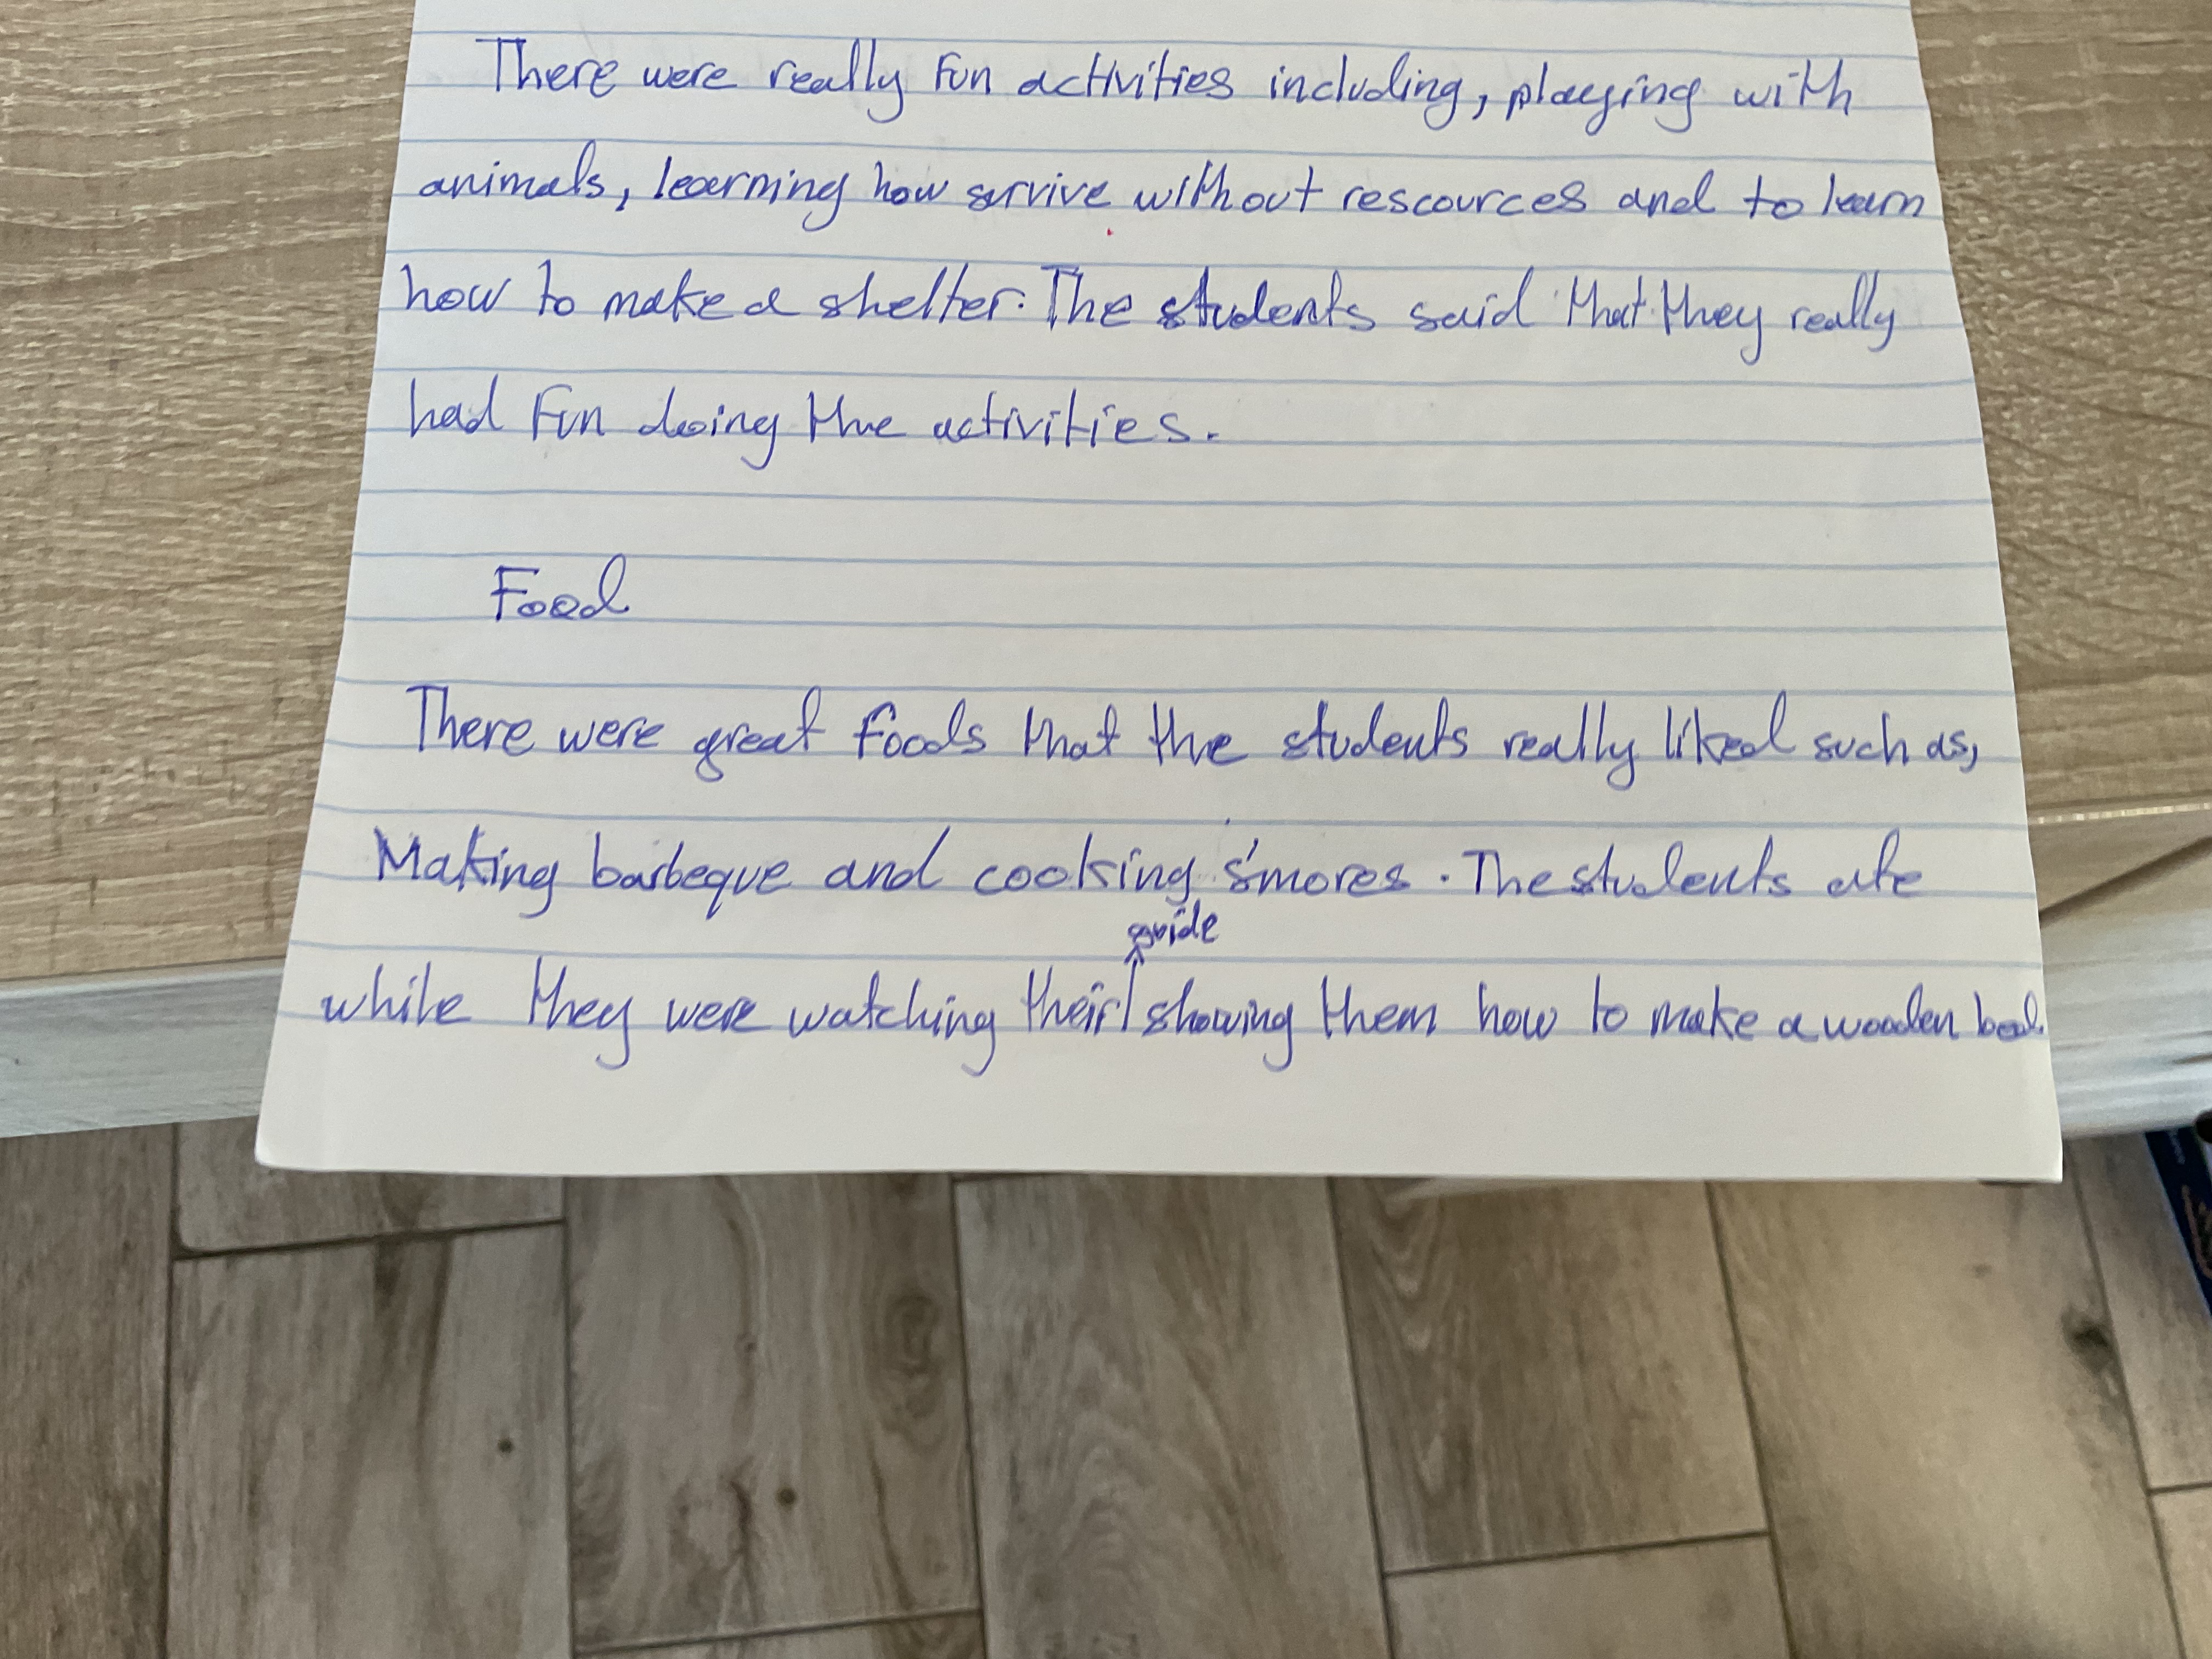 There were really fun activities including, playing with
animals, learning how survive without rescources and to learn
how to make a shelter. The students said that they really
had fun doing the activities.
Food
There were great foods that the students really liked such as,
Making barbeque and cooking s'mores. The students ate
guide
while they were watching their showing them how to make a wooden bed.